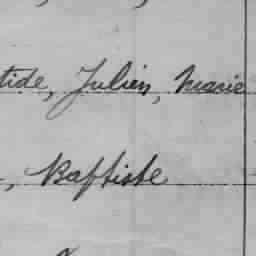 tide, Julien, Marie
, Baptiste